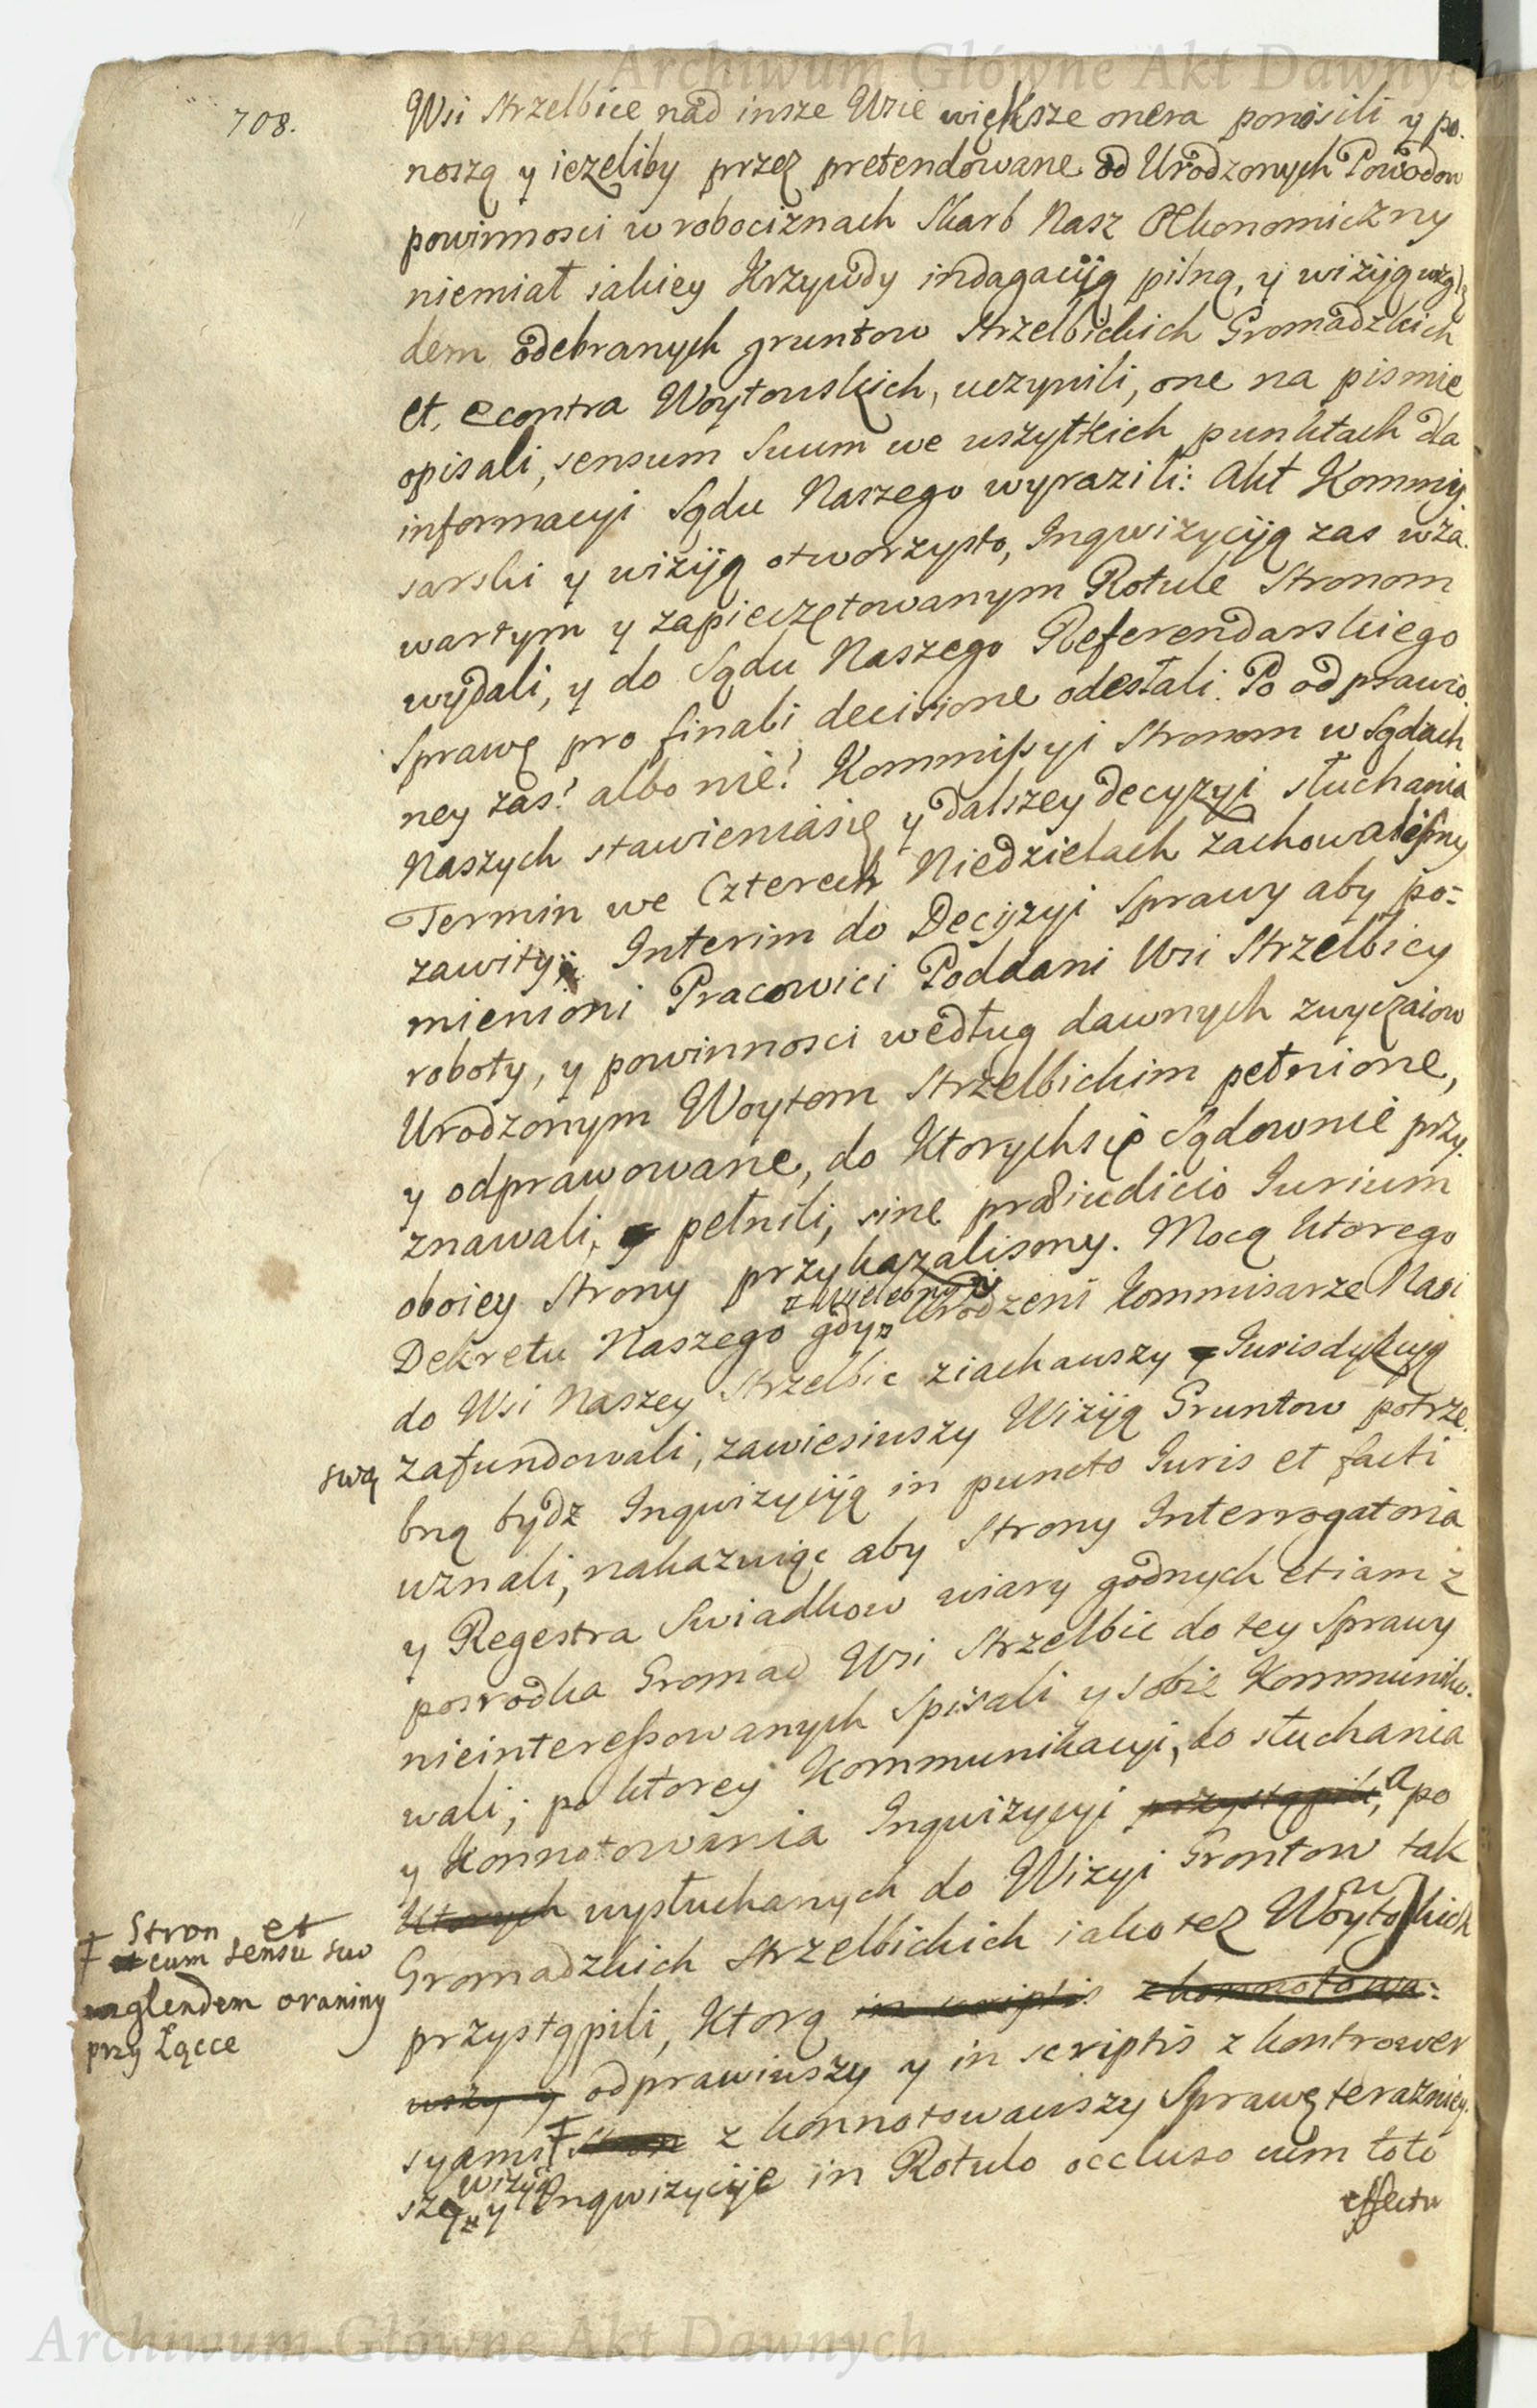 Archiwum Główne Akt Dawnych
708.
Wsi Strzelbice nad insze Wsie większe onera ponosili y po.
noszą y iezeliby przez pretendowane od Urodzonych Powodow
powinnosci w robociznach Skarb Nasz Oekonomiczny
niemiał iakiey Krzywdy indagacyią pilną, y wiziją wzglę
dem odebranych gruntow Strzelbickich Gromadzkich
et, econtra Woytowskich, uczynili, one na pismie
opisali, sensum Suum we wszytkich punktach dla
informacyi Sądu Naszego wyrazili: Akt Kommis
sarski y wiziją otworzysto, Inqwizyciją zas wza.
wartym y zapieczętowanym Rotule Stronom
wydali, y do Sądu Naszego Referendarskiego
Sprawę pro finali decisione odesłali. Po odprawio.
ney zas! albo nie! Kommissyi Stronom w Sądach
Naszych stawieniasię y dalszey decyzyi słuchania
Termin we Czterech Niedzielach zachowalismy
zawity; Interim do Decyzyi Sprawy aby po=
mienioni Pracowici Poddani Wsi Strzelbicy
roboty, y powinnosci według dawnych zwyczaiow
Urodzonym Woytom Strzelbickim pełnione,
y odprawowane, do Ktorychsię Sądownie przy.
znawali, pełnili, sine præiudicio Iurium
oboiey Strony przykazalismy. Mocą ktorego
Wielebny y
Dekretu Naszego gdy Urodzeni Kommisarze Nasi
do Wsi Naszey Strzelbic ziachawszy Iurisdykcyą
swą zafundowali, zawiesiwszy Wiziją Gruntow potrze.
bną bydz Inqwizyciją in puncto Iuris et facti
uznali, nakazuiąc aby Strony Interrogatoria
y Regestra Swiadkow wiary godnych etiam z
posrodka Gromad Wsi Strzelbic do tey Sprawy
nieinteressowanych Spisali y sobie Kommuniko.
wali; po ktorey Kommunikacyi, do słuchania
y Konnotowania Inqwizycyi przystąpili, a po
Ktorych wysłuchanych do Wizyi Grontow tak
Gromadzkich Strzelbickich iako tez Woytowskich
przystąpili, Ktorą in scriptis zkonnotowa=
wszy y odprawiwszy y in scriptis z kontrower
syami Stron z konnotowawszy Sprawę terazniey.
wiziją
szą y Inqwizycije in Rotulo occluso cum toto
effectu
Stron et
cum sensu suo
wzglendem oraniny
przy Łące
Archiwum Główne Akt Dawnych